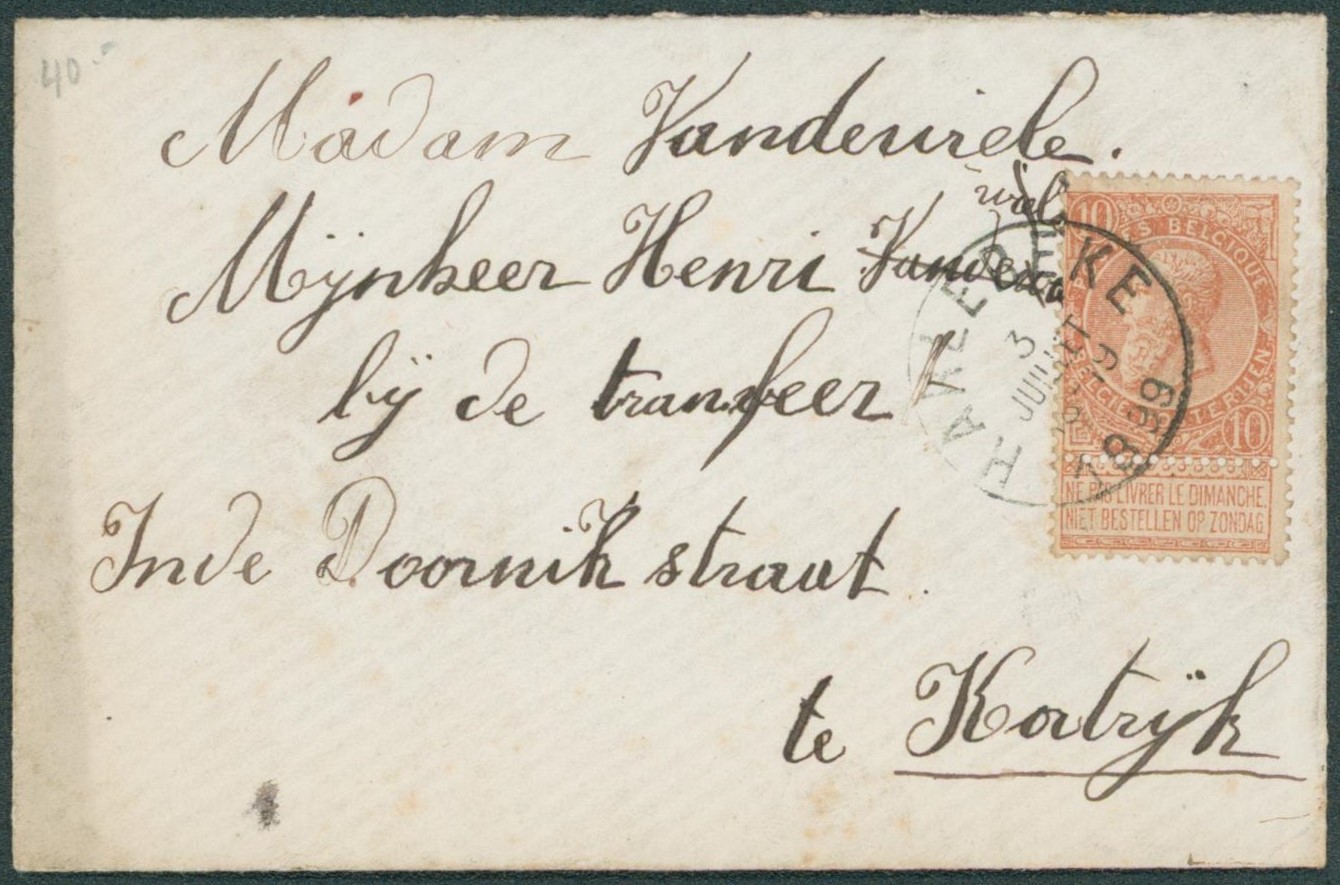 40.-
Madam Vandewiele.
wiel
Mijnheer Henri
bij de tranfeer
Inde Doornik straat.
te Kortrijk
HARLEBEKE
3
JUILLET
9
1899
10
BELGIQUE
10
NE PAS LIVRER LE DIMANCHE.
NIET BESTELLEN OP ZONDAG